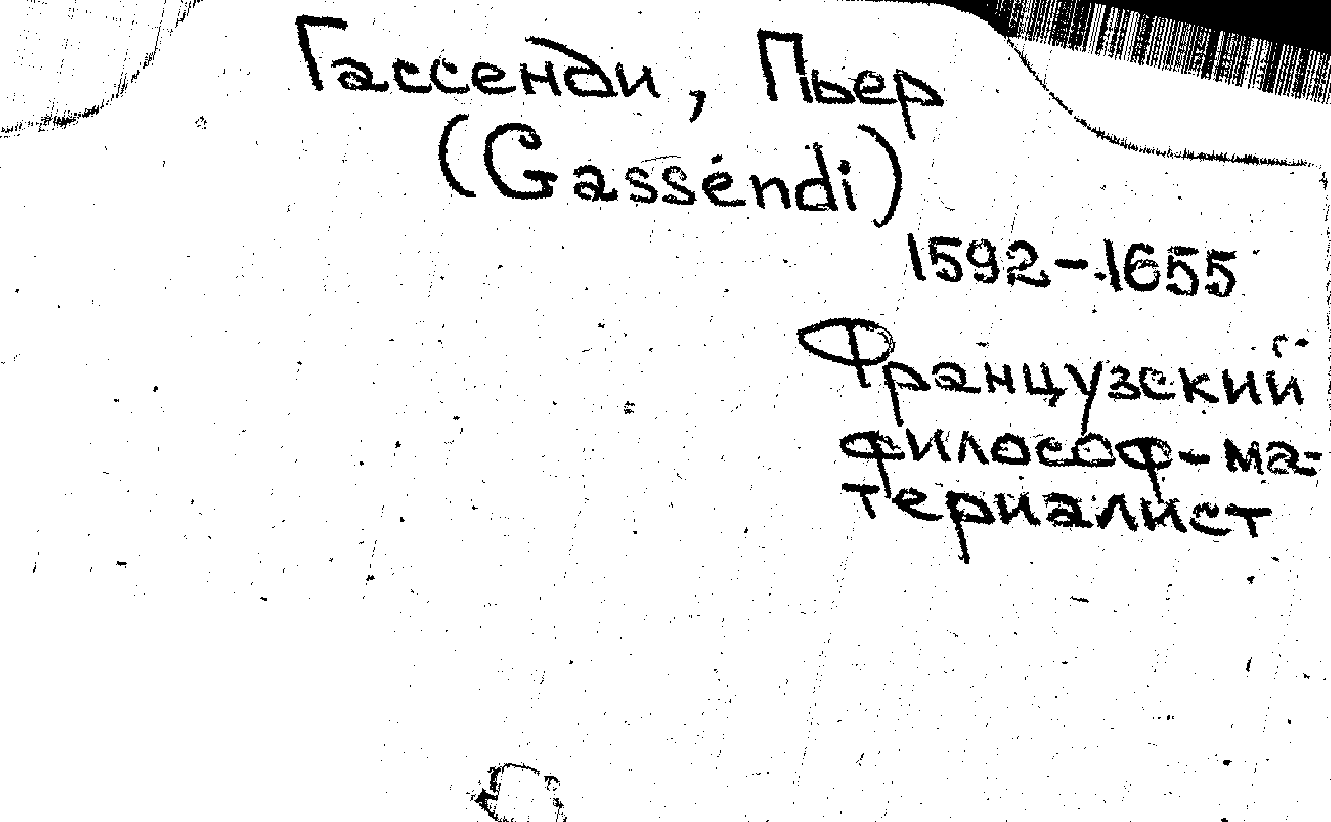 Гассенди, Пьер
(Gasséndi)
1592-1655
Французский
философ-ма-
териалист